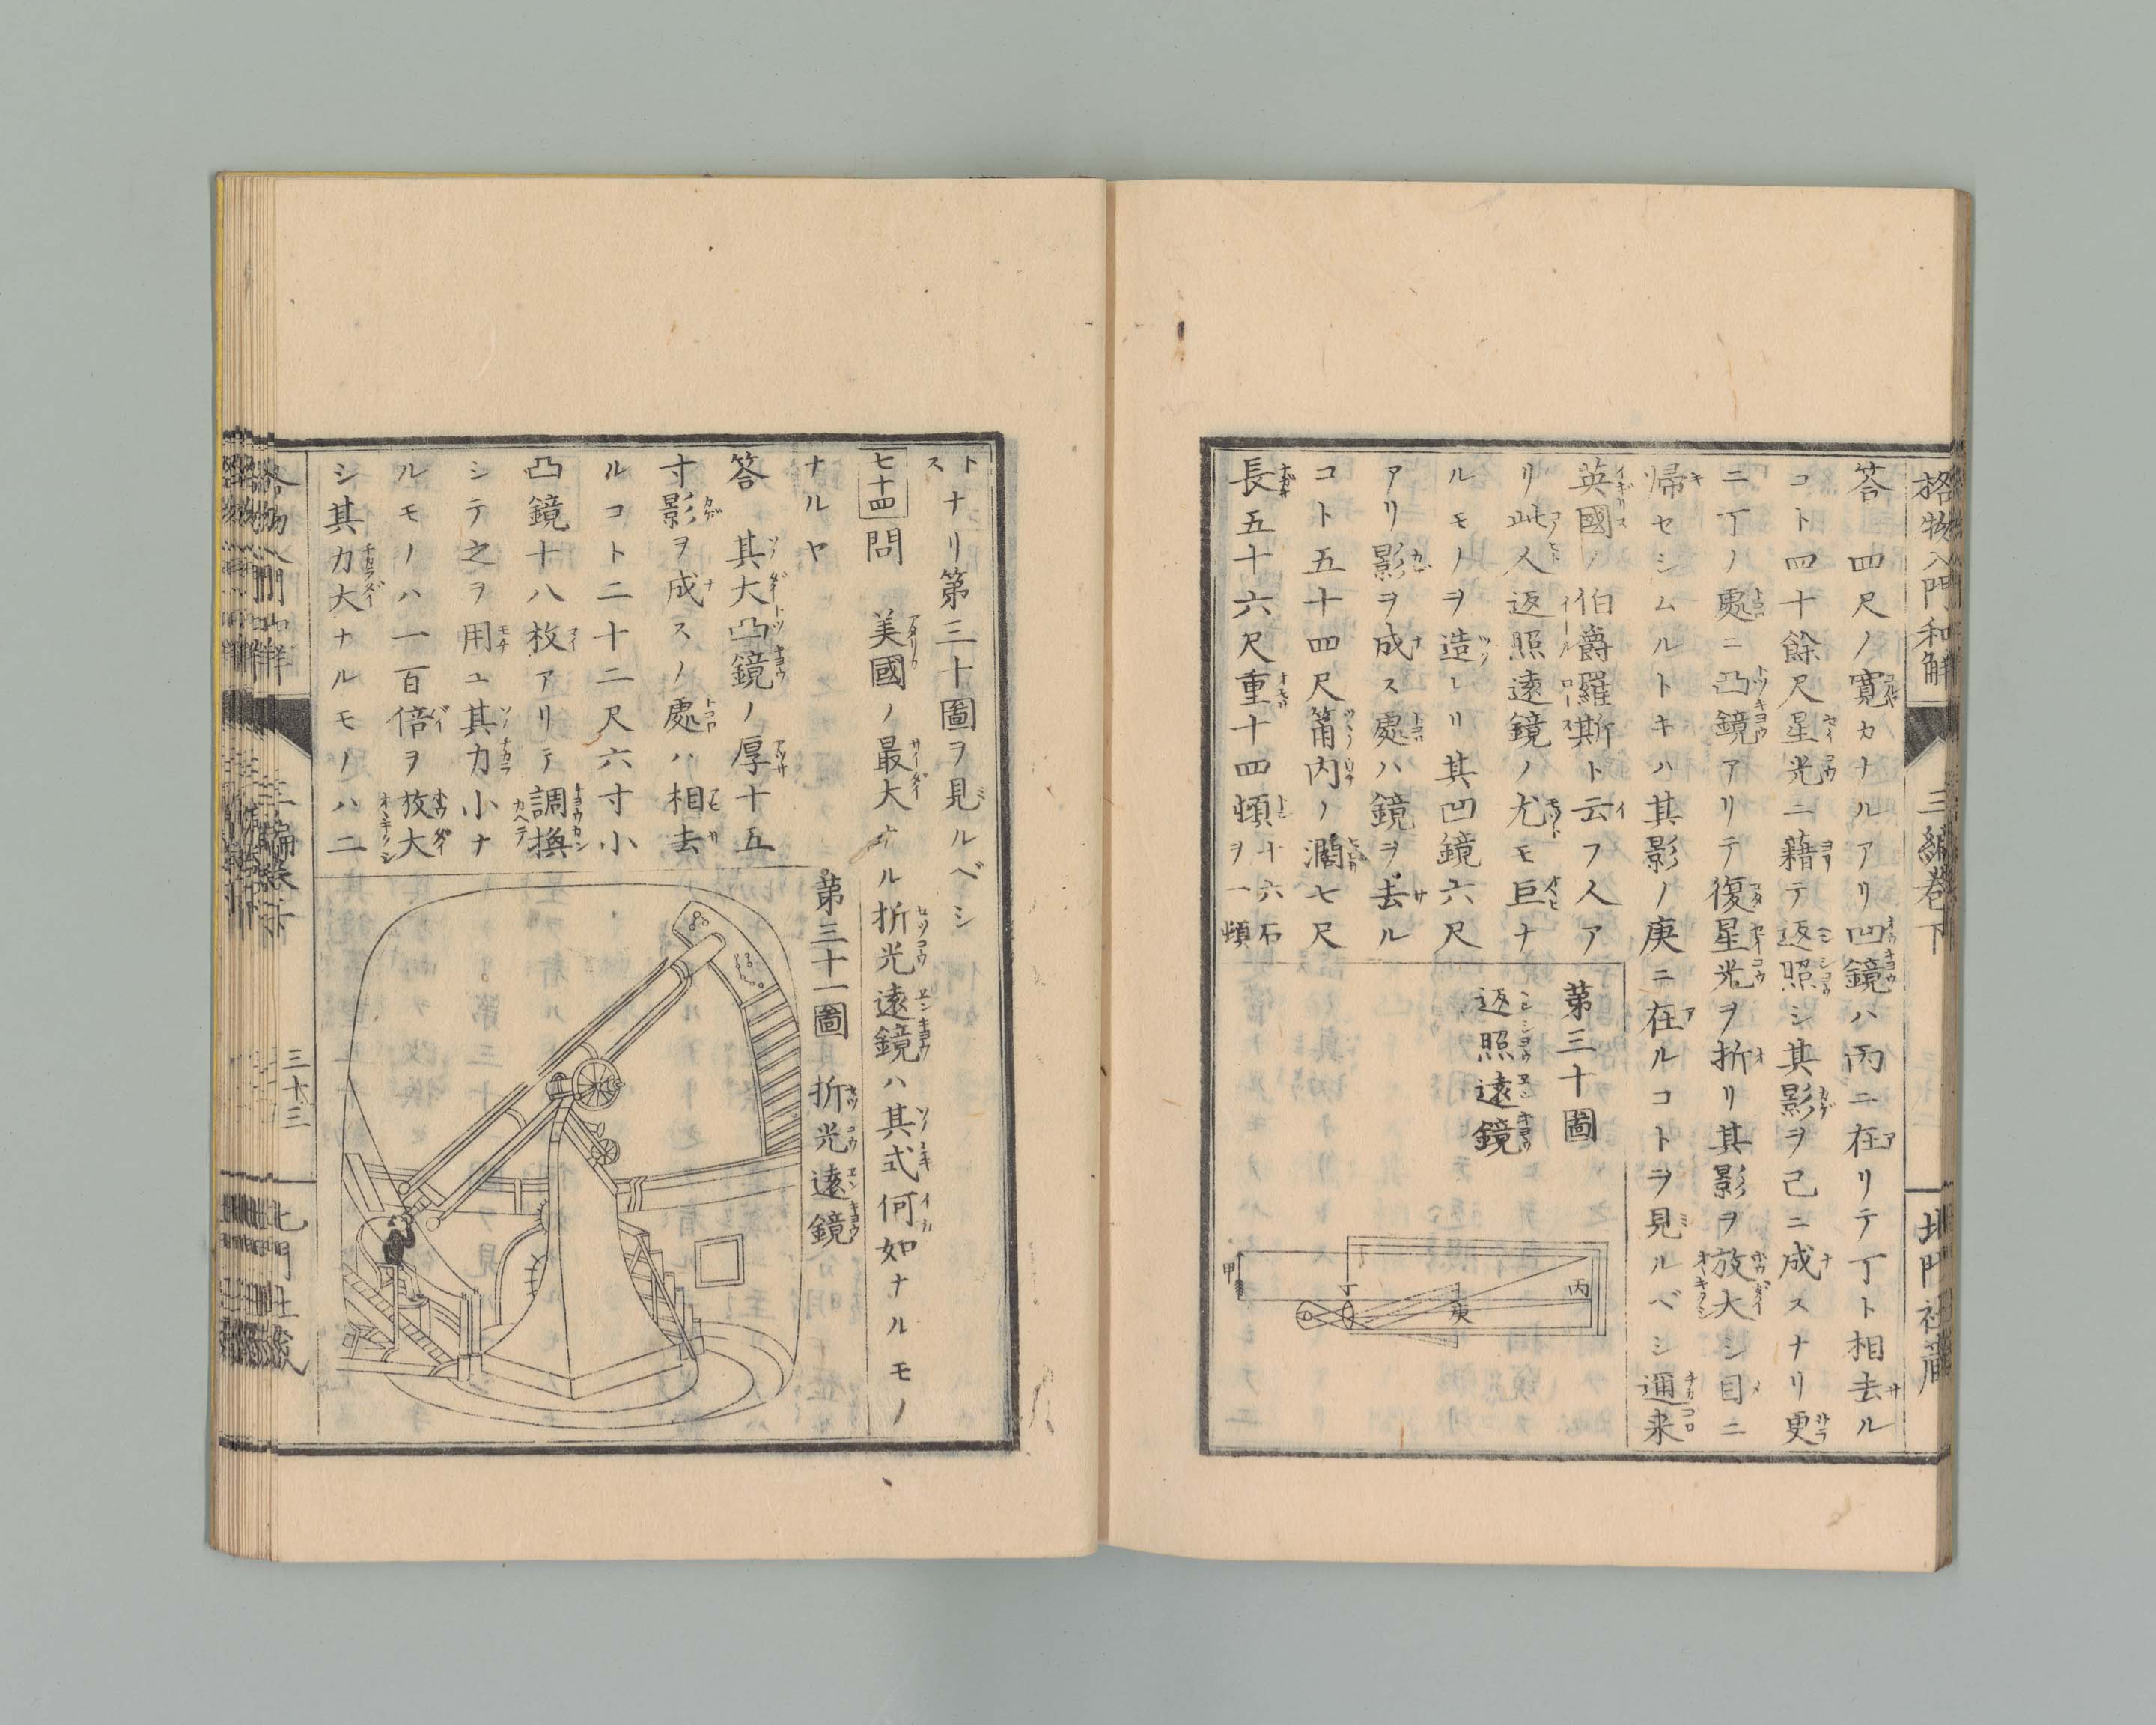 格物入門和解 三編巻下 北門社蔵
答 四尺ノ寛カナルアリ凹鏡ハ丙ニ在リテ丁ト相去ル
コト四十餘尺星光ニ藉テ返照シ其影ヲ己ニ成スナリ更
ニ丁ノ處ニ凸鏡アリテ復星光ヲ折リ其影ヲ放大シ目ニ
帰セシムルトキハ其影ノ庚ニ在ルコトヲ見ルベシ通来
英國ノ伯爵羅斯ト云フ人ア
リ此人返照遠鏡ノ尤モ巨ナ
ルモノヲ造レリ其凹鏡六尺
アリ影ヲ成ス處ハ鏡ヲ去ル
コト五十四尺筩内ノ濶七尺
長五十六尺重十四頓十六石ヲ一頓
第三十圖
返照遠鏡
甲
丁
庚
丙
トナリ第三十圖ヲ見ルベシ
ス
七十四問 美國ノ最大ナル折光遠鏡ハ其式何如ナルモノ
ナルヤ
答 其大凸鏡ノ厚十五
寸影ヲ成スノ處ハ相去
ルコト二十二尺六寸小
凸鏡十八枚アリテ調換
シテ之ヲ用ユ其力小ナ
ルモノハ一百倍ヲ放大
シ其力大ナルモノハ二
第三十一圖 折光遠鏡
三十三